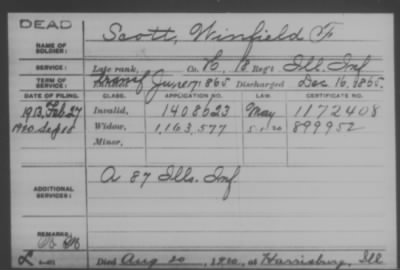 DEAD
NAME OF SOLDIER: Scott, Winfield F
SERVICE: Late rank, Co. B, 13 Reg't Ill. Inf
TERM OF SERVICE: Transf June 17, 1865 Discharged Dec 16, 1865.
DATE OF FILING. CLASS. APPLICATION NO. LAW. CERTIFICATE NO.
1913, Feb 27 Invalid, 1408623 May 1172408
1920 Sep 18 Widow, 1,163,577 5.1.20 899952
Minor,
ADDITIONAL SERVICES: A 87 Ills. Inf
REMARKS:
Died Aug 20, 1920, at Harrisburg, Ill